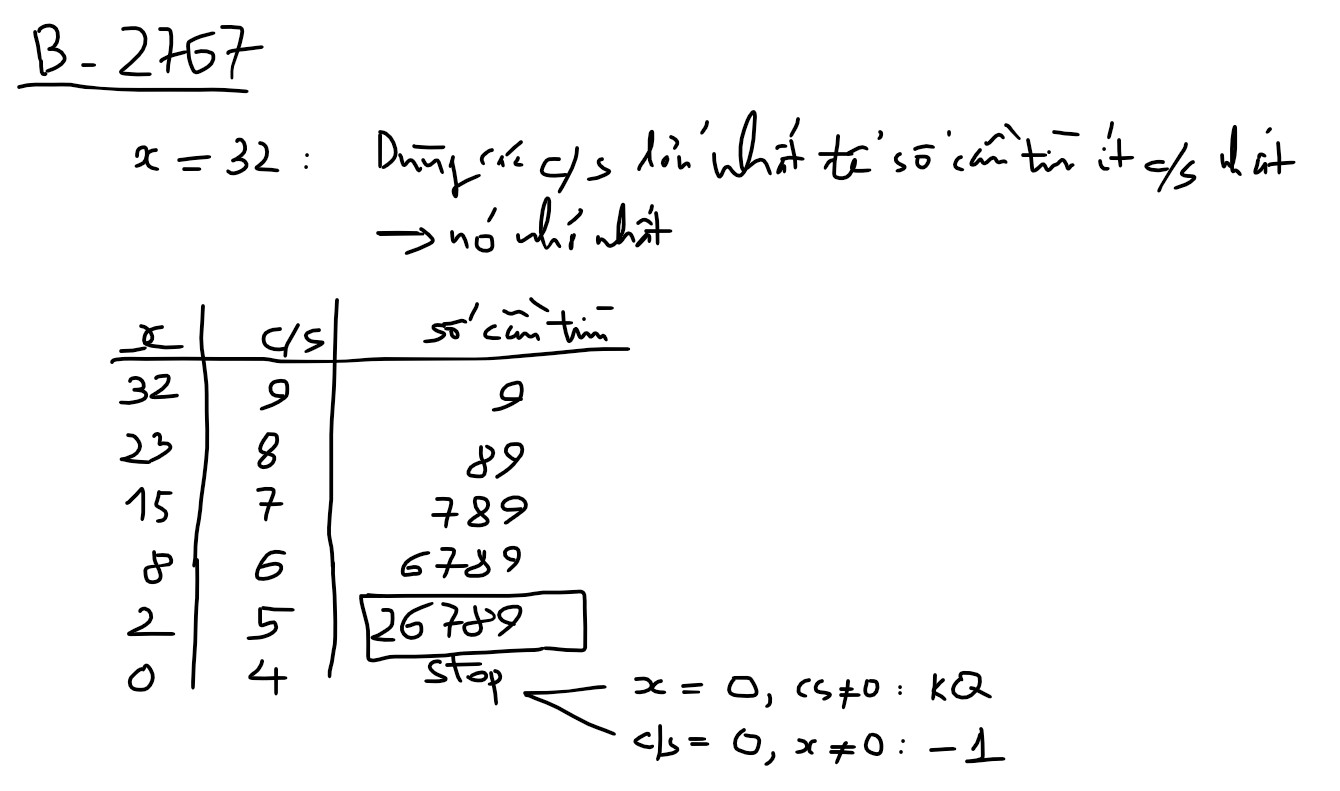 B - 2767
x = 32 : Dùng các c/s lớn nhất để số cần tìm ít c/s nhất
→ nó nhỏ nhất
x c/s số cần tìm
32 9 9
23 8 89
15 7 789
8 6 6789
2 5 26789
0 4 stop
x = 0, cs≠0 : KQ
c/s = 0, x ≠ 0 : -1